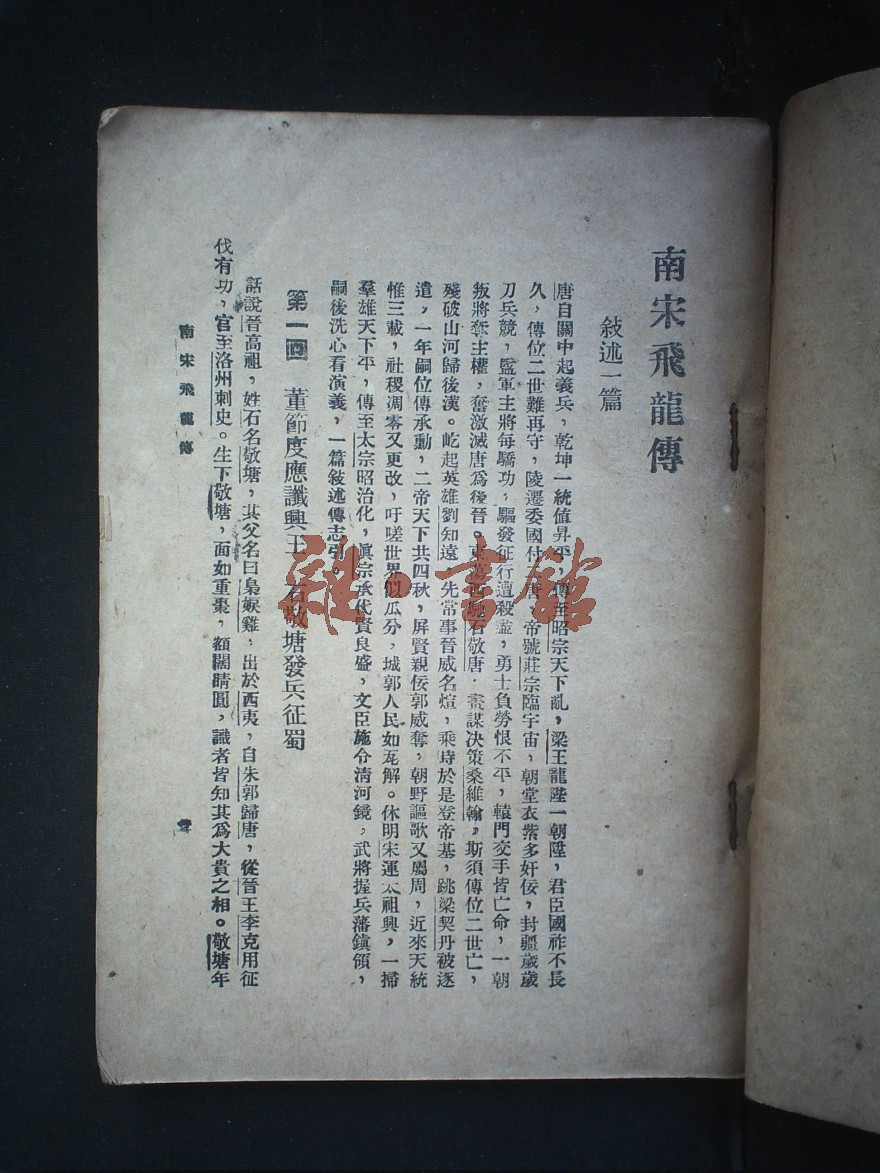 南宋飛龍傳
敍述一篇
唐自關中起義兵，乾坤一統值昇平，傳至昭宗天下亂，梁王龍陞一朝陞，君臣國祚不長
久，傳位二世難再守，陵遷委國付唐，帝號莊宗臨宇宙，朝堂衣紫多奸佞，封疆歲歲
刀兵競，監軍主將每驕功，驅發征行遭殺盡，勇士負勞恨不平，轅門交手皆亡命，一朝
叛將奪主權，奮激滅唐爲後晉。東石敬唐．畫謀决策桑維翰，斯須傳位二世亡，
殘破山河歸後漢。屹起英雄劉知遠　先常事晉威名煊，乘時於是登帝基，跳梁契丹被逐
遣，一年嗣位傳承勳，二帝天下共四秋，屏賢親佞郭威奪，朝野謳歌又屬周，近來天統
惟三載，社稷凋零又更改，吁嗟世界似瓜分，城郭人民如瓦解。休明宋運太祖興，一掃
羣雄天下平，傳至太宗昭治化，眞宗承代賢良盛，文臣施令清河鏡，武將握兵藩鎭領，
嗣後洗心看演義，一篇敍述傳志引。
第一回　董節度應讖興王　石敬塘發兵征蜀
話說晉高祖，姓石名敬塘，其父名曰臬捩雞，出於西夷，自朱郭歸唐，從晉王李克用征
伐有功，官至洛州刺史。生下敬塘，面如重棗，額闊睛圓，識者皆知其爲大貴之相。敬塘年
南宋飛龍傳
雜·書館